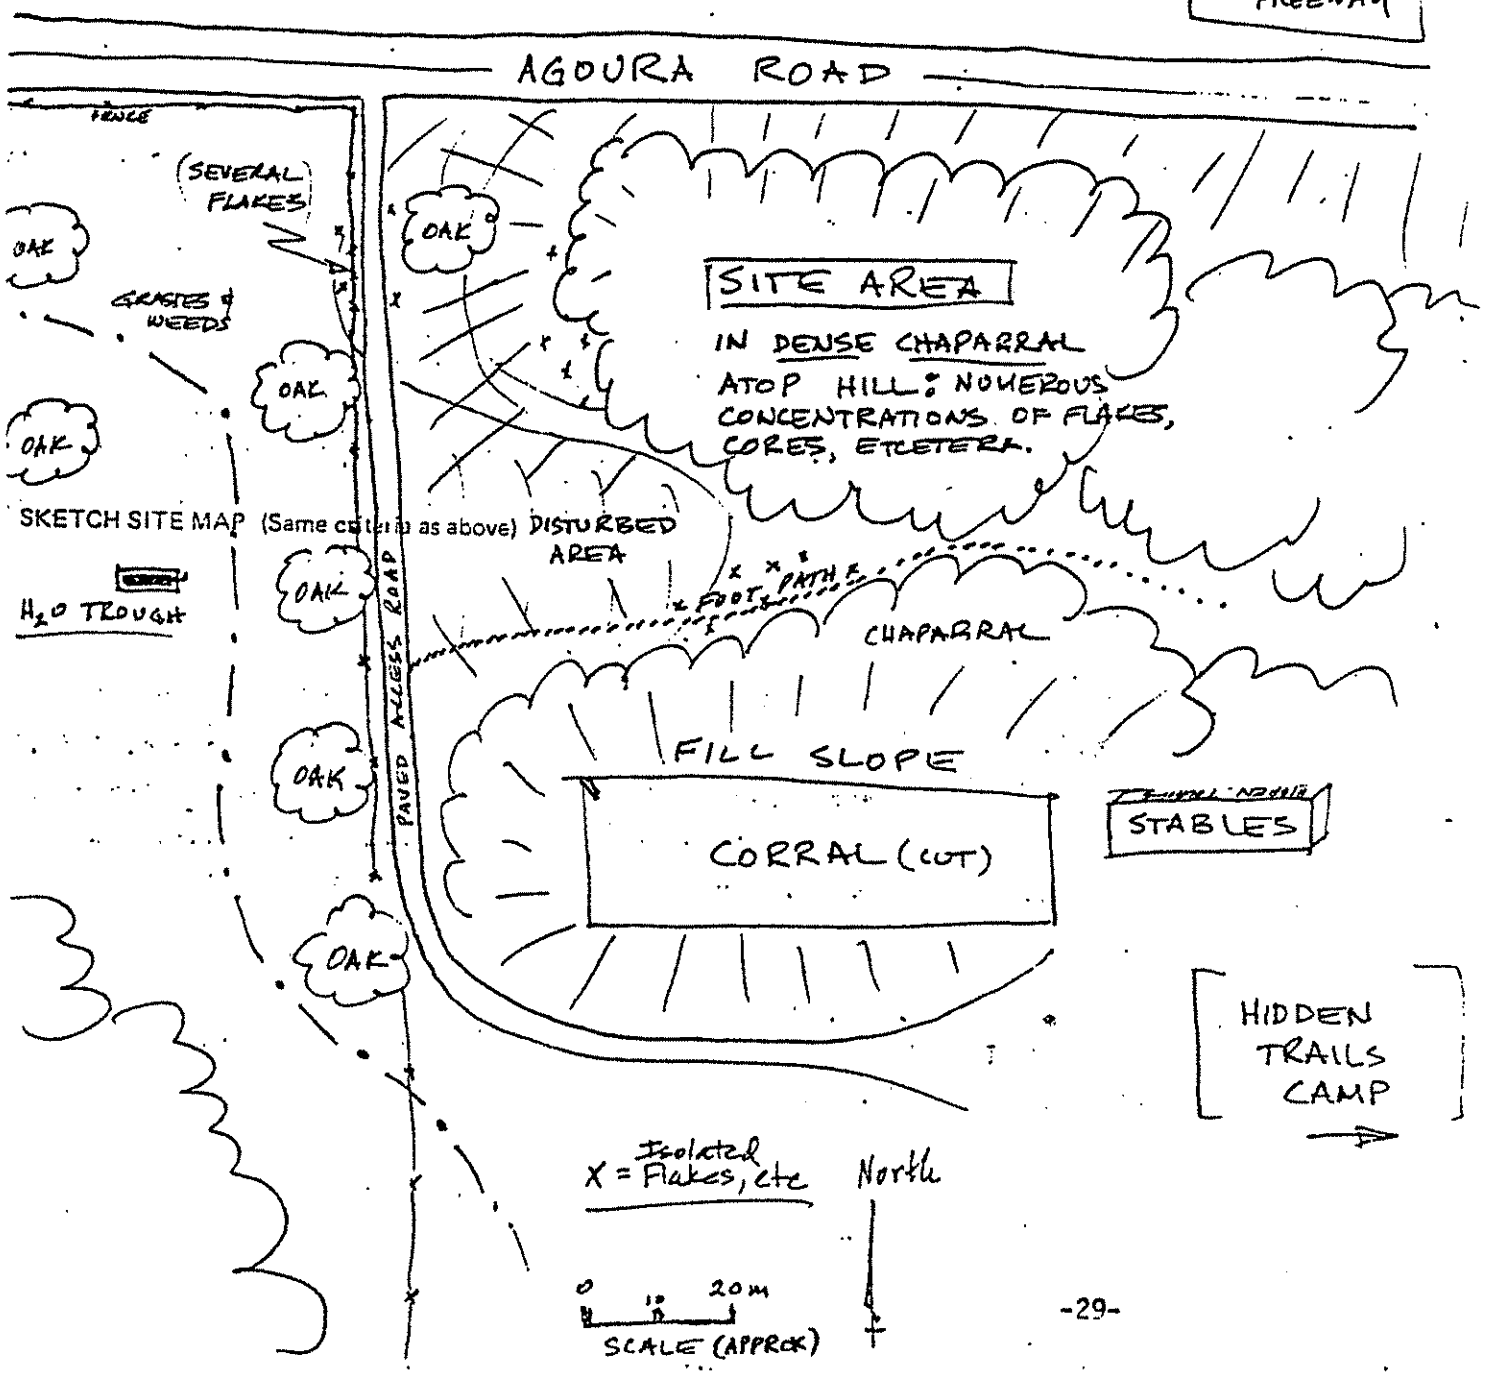 FREEWAY
AGOURA ROAD
FENCE
(SEVERAL
FLAKES)
OAK
OAK
GRASSES &
WEEDS
SITE AREA
IN DENSE CHAPARRAL
ATOP HILL: NUMEROUS
CONCENTRATIONS OF FLAKES,
CORES, ETCETERA.
OAK
OAK
SKETCH SITE MAP (Same criteria as above)
DISTURBED
AREA
H2O TROUGH
OAK
PAVED ACCESS ROAD
FOOT PATH
CHAPARRAL
OAK
FILL SLOPE
CORRAL (CUT)
STABLES
OAK
HIDDEN
TRAILS
CAMP
Isolated
X = Flakes, etc
North
0 10 20m
SCALE (APPROX)
-29-